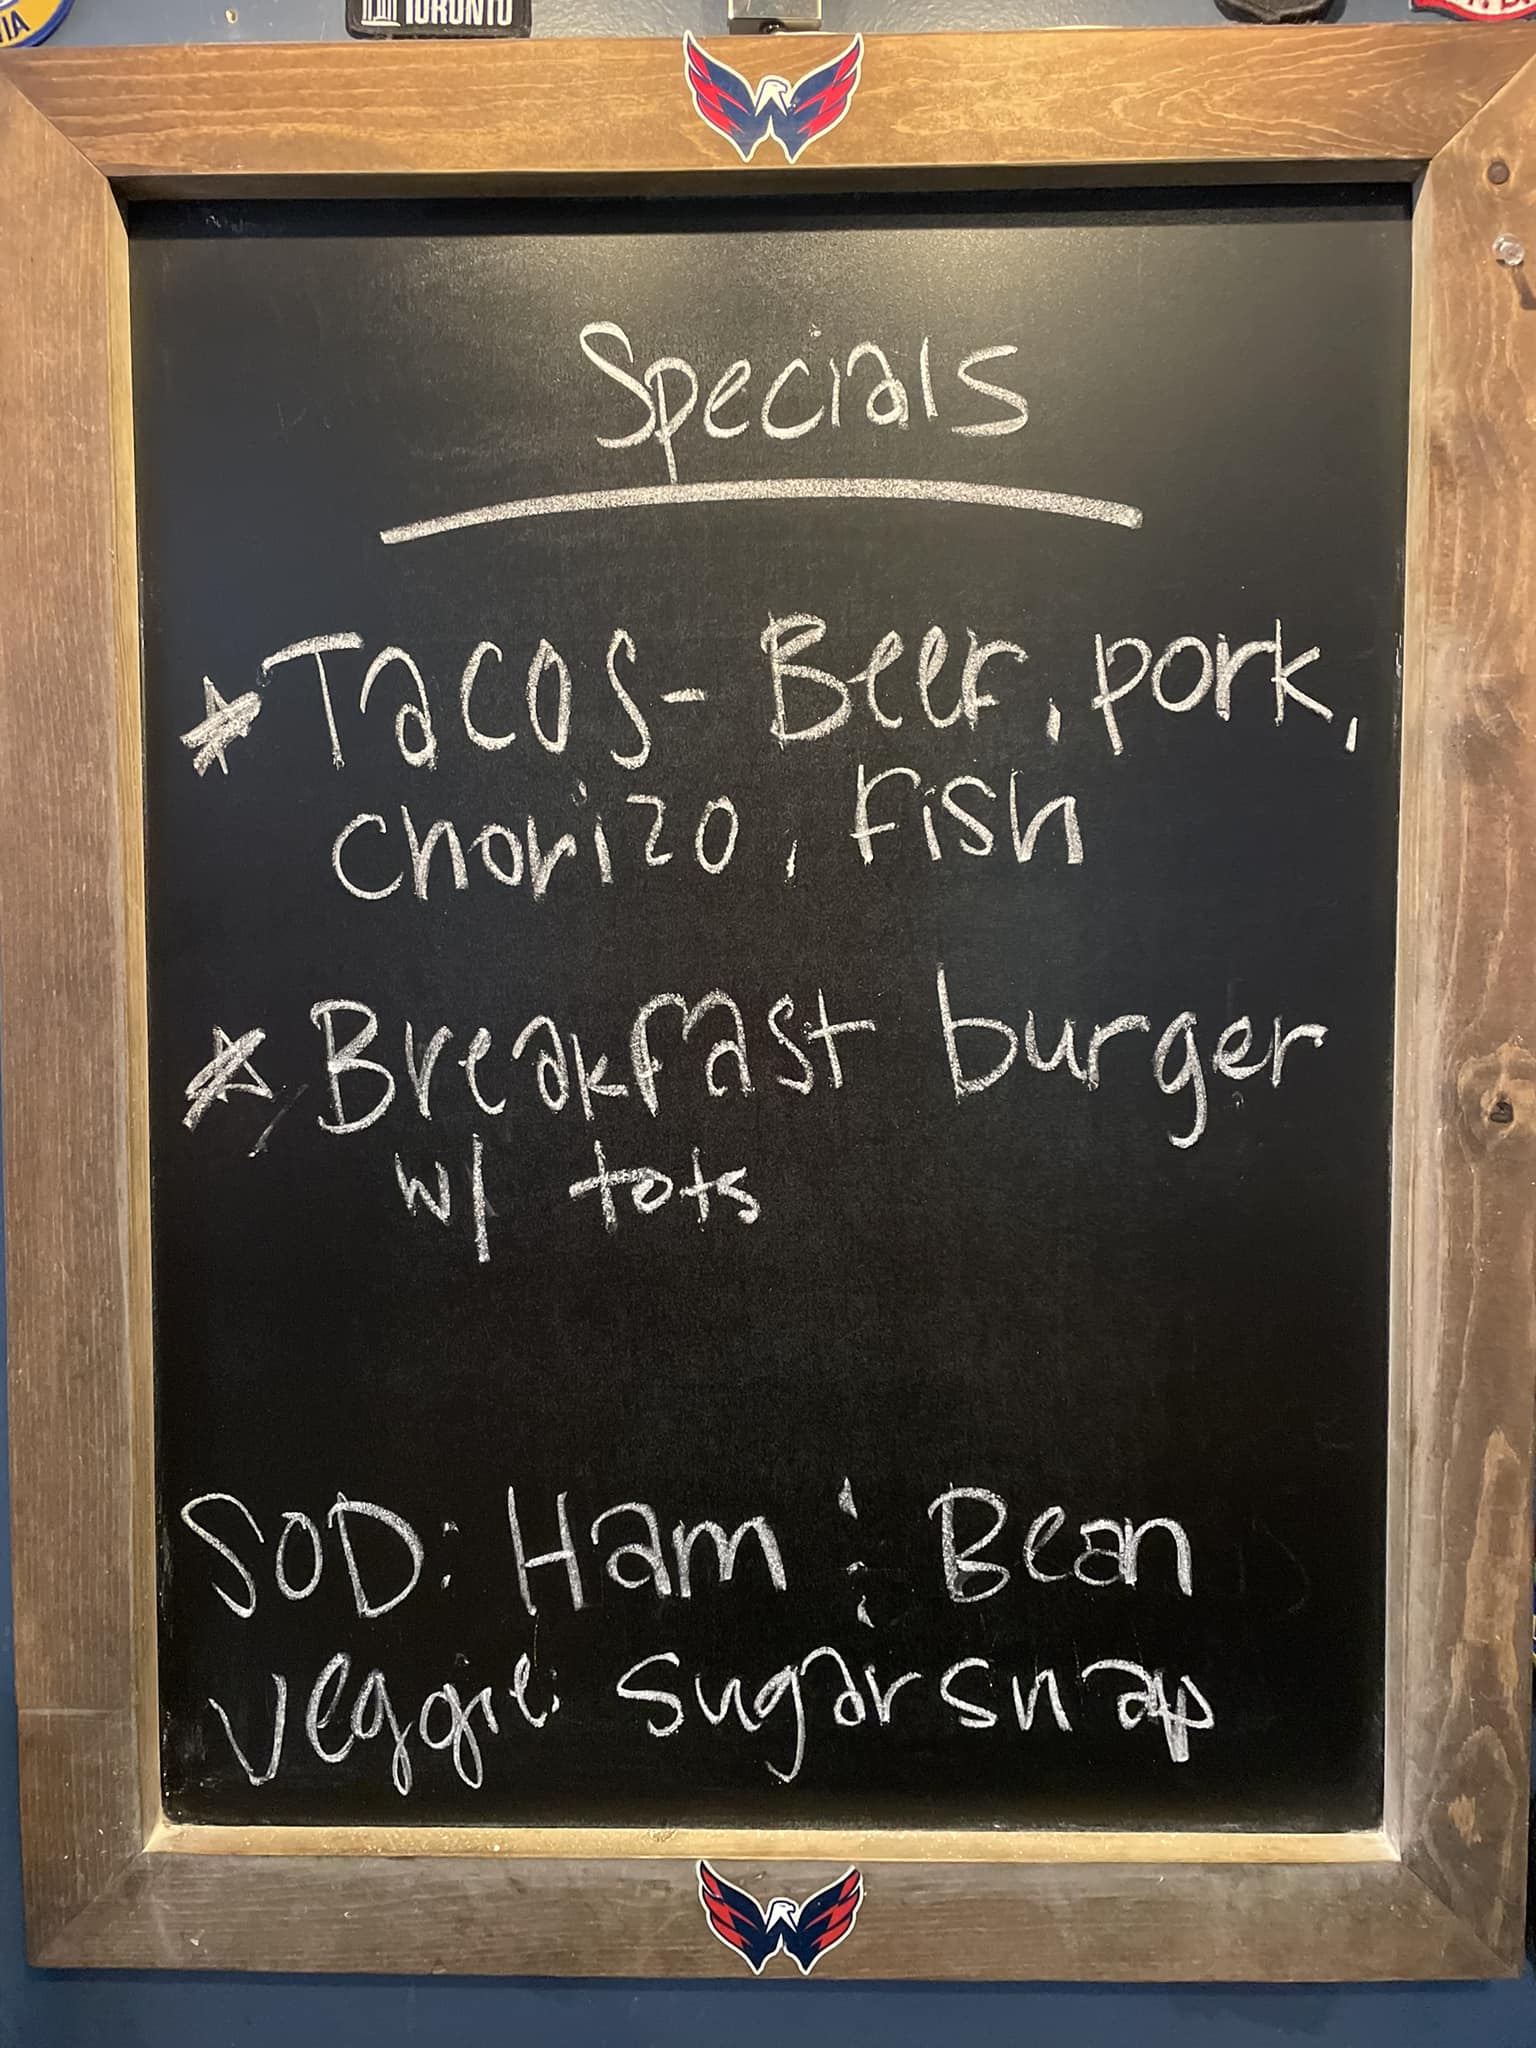 TORONTO
Specials
Tacos- Beef, pork,
chorizo, Fish
Breakfast burger
w/ tots
SOD: Ham & Bean
Veggie: sugar snap